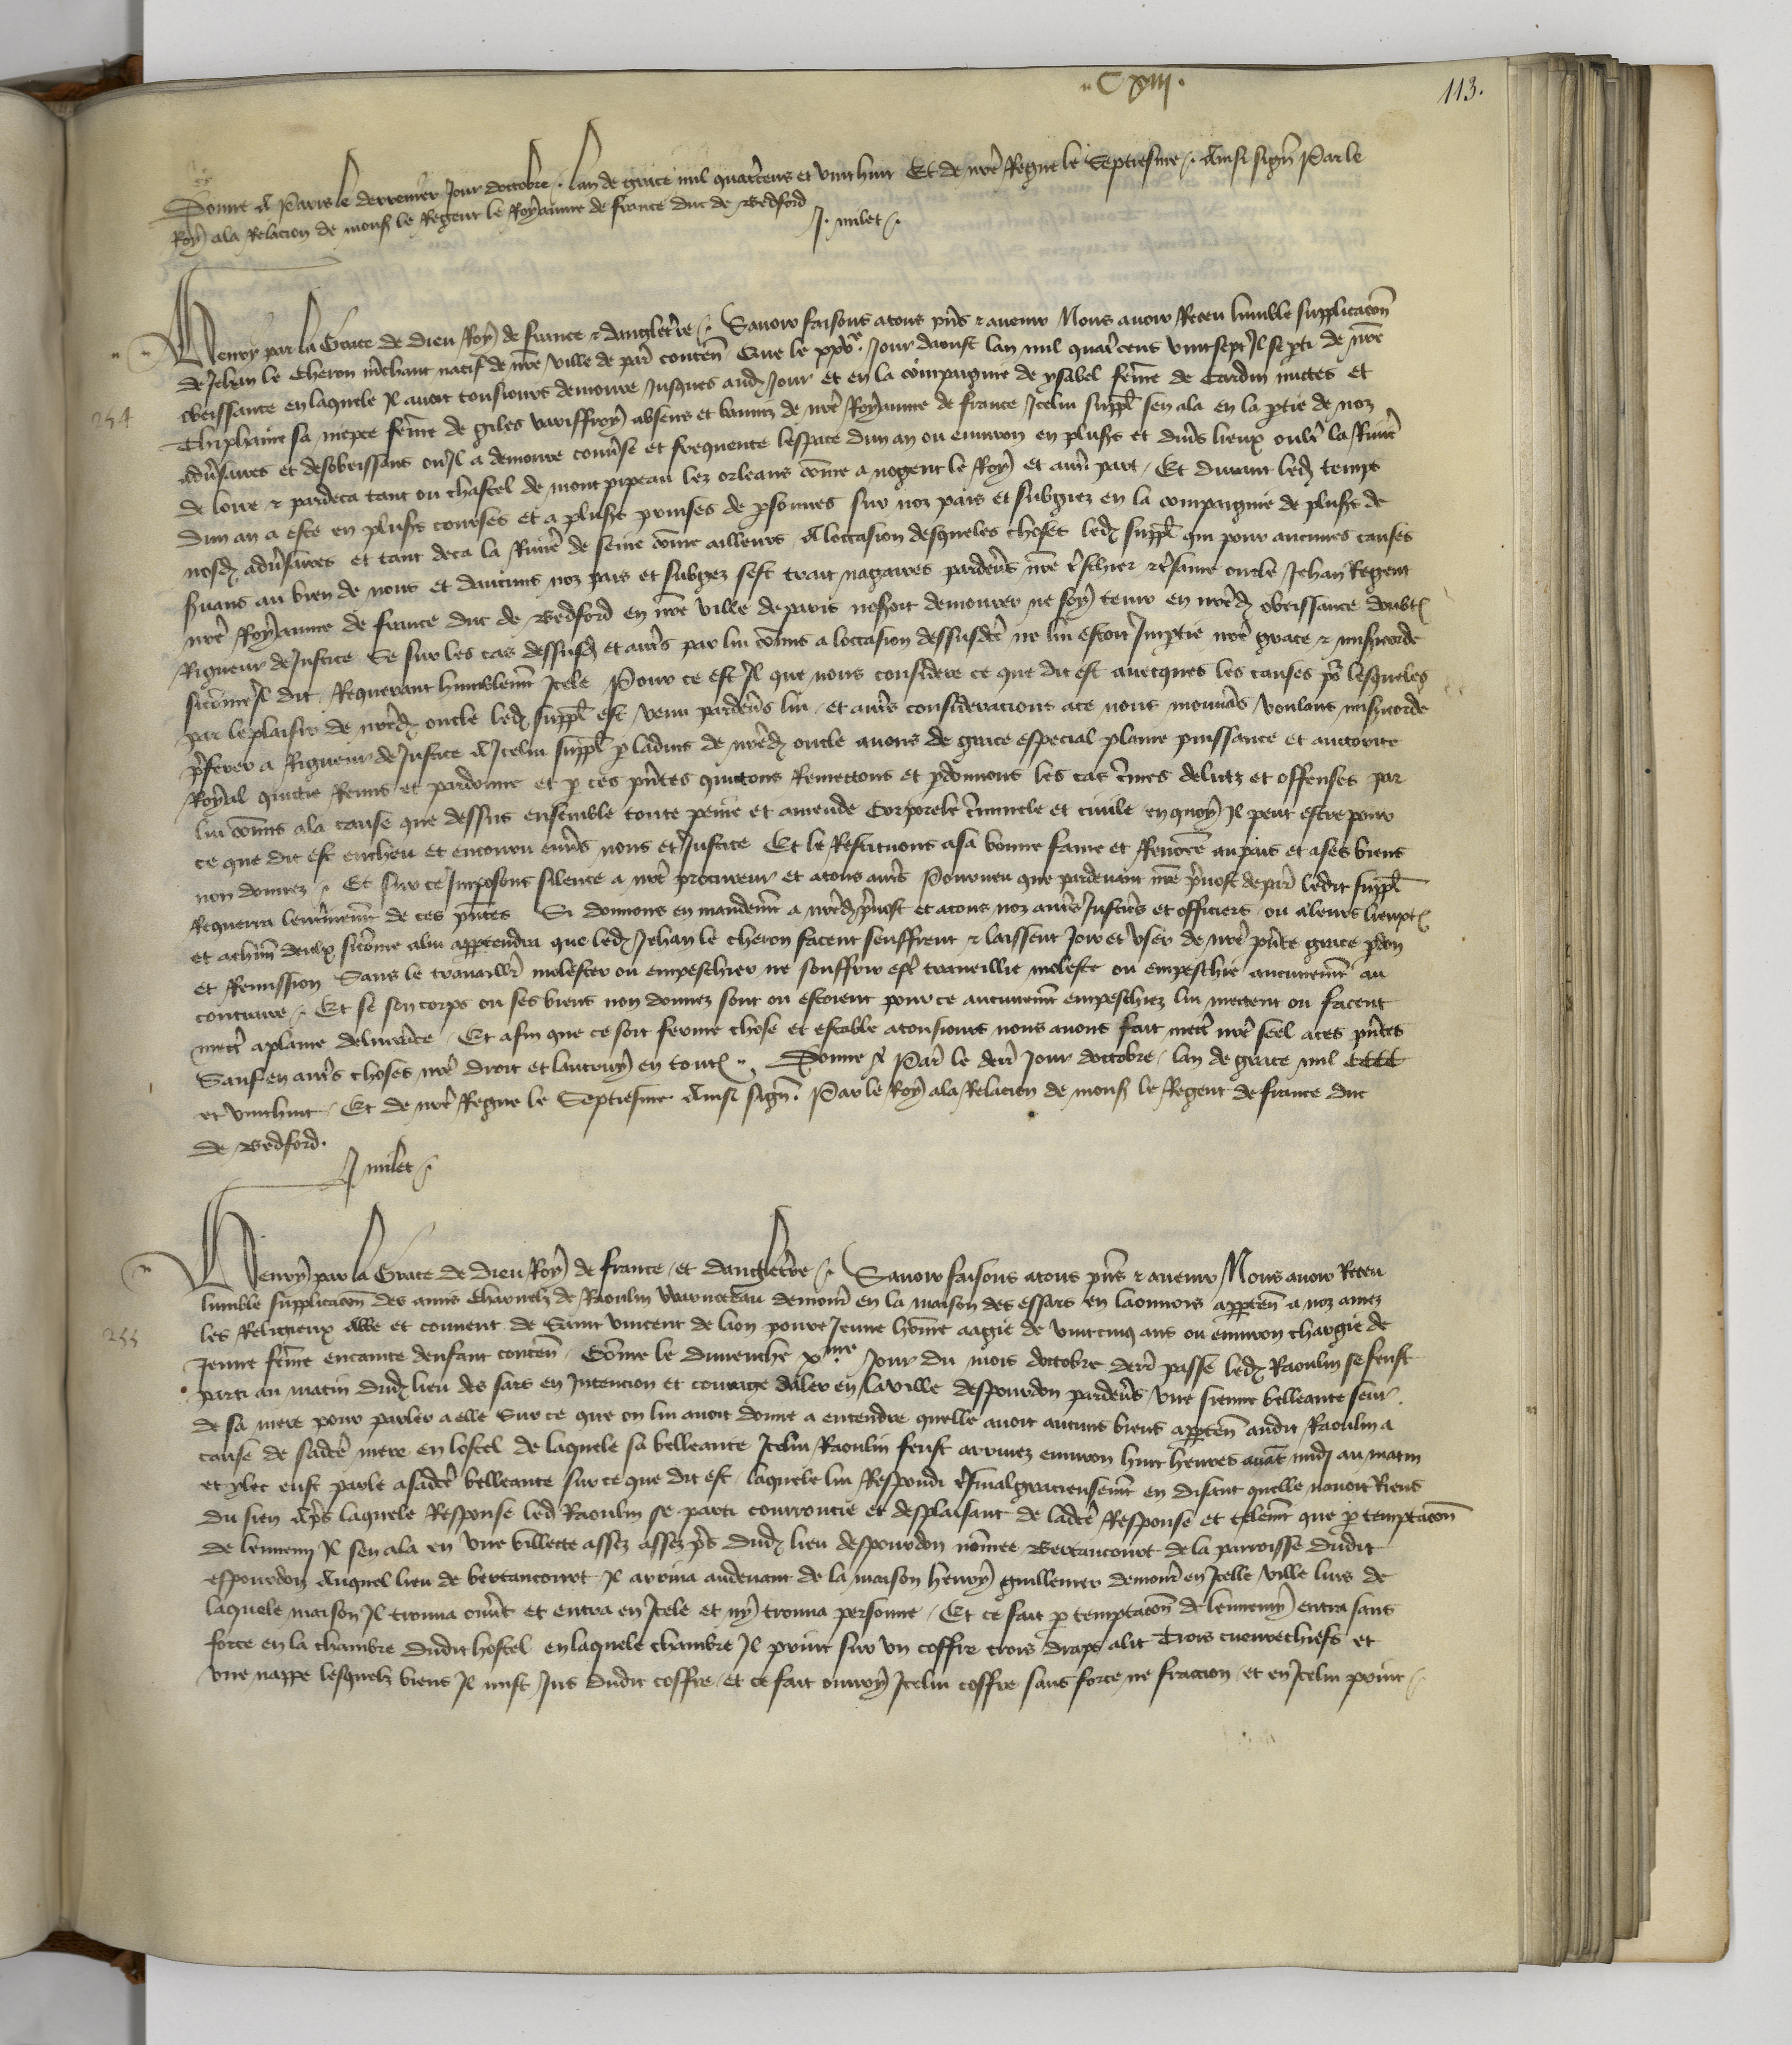 ·C xiii·
113.
Donne A Paris le derrenier Jour doctobre · lan de grace mil quatrecens et vint huit Et de nre Regne le Septiesme · Ainsi signe Par le
Roy ala Relacion de mons le Regent le Royaume de france duc de Bedford
J. milet
Henry par la Grace de Dieu Roy de france & dangleterre · Sauoir faisons atous pns & auenir Nous auoir Receu lumble supplicacon
de Jehan le Cheron mrchant natif de nre ville de par contenn Que le xxve Jour daoust lan mil quatrcens vint sept Il se pti de nre
obeissance en laquele Il auoit tousiours demoure Jusques aud Jour et en la compaignie de ysabel feme de Cardin mittes et
254
Thiphaine sa niepce feme de giles variffroy absens et banniz de nre Royaume de france Icelui suppl sen ala en la ptie de noz
aduersaires et desobeissans ou Il a demoure conuse et frequente lespace dun an ou enuiron en plus et diuers lieux oultre la Riuie
de loire & pardeca tant ou chastel de mont pipeau lez orleans come a nogent le Roy et autre part · Et durant led temps
dun an a este en plus courses et a plus prinses de psonnes sur noz pais et subgiez en la compaignie de plus de
nosd aduersaires et tant deca la Riuie de seine come ailleurs A loccasion desqueles choses led suppl qui pour aucunes causes
seruans au bien de nous et daucuns noz pais et subgiez sest trait nagaires pardeuers nre treschier & tresame oncle Jehan Regent
nre Royaume de france duc de Bedford en nre ville de paris noseroit demourer ne soy tenir en nred obeissance doubt
Rigueur de Justice Se sur les cas dessusd et autres par lui comis a loccasion dessusdte ne lui estoit Imptie nre grace & misericorde
sicome Il dit Requerant humblemt Icele Pour ce est Il que nous considere ce que dit est auecques les causes por lesqueles
par le plaisir de nred oncle led suppl est venu pardeuers lui et autres consideracions ace nous mouuas voulans misericorde
preferer a Rigueur de Justice A Icelui suppl p ladius de nred oncle auons de grace especial plaine puissance et auctorite
Royal quicte Remis et pardonne et p ces pntes quictons Remettons et pdonnons les cas crimes delictz et offenses par
lui comis ala cause que dessus ensemble toute peine et amende Corporele criminele et ciuile en quoy Il peut estre pour
ce que dit est encheu et encouru enuers nous et Justice Et le Restituons asa bonne fame et Renomee au pais et ases biens
non donnez · Et sur ce Imposons silence a nre procureur et atous autres Pourueu que pardeuant nre preuost de par ledit suppl
Requerra lenterinemt de ces pntes Si donnons en mandemt a nred preuost et atous noz autres Justiciers et officiers ou aleurs lieuxt
et achun deulx sicome alui appartendra que led Jehan le cheron facent seuffrent & laissent Joir et vser de nre pnte grace pdon
et Remission Sans le trauaillier molester ou empeschier ne souffrir estre traueillie moleste ou empeschie aucunemt au
contraire · Et se son corps ou ses biens non donnez sont ou estoient pour ce aucunemt empeschiez lui mettent ou facent
mettre aplaine deliurance · Et afin que ce soit ferme chose et estable atousiours nous auons fait mettre nre seel aces pntes
Sauf en autres choses nre droit et lautruy en tout · Donne A Par le derr Jour doctobre lan de grace mil CCCC
et vinthuit · Et de nre Regne le Septiesme Ainsi signe · Par le Roy ala Relacion de mons le Regent de france duc
de Bedford ·
J milet
Henry par la Grace de Dieu Roy de france et dangleterre · Sauoir faisons atous pns & auenir Nous auoir Receu
lumble supplicacon des amis Charnelz de Raoulin Warnecteau demour en la maison des essars en laonnois apparten a noz amez
255
les Religieux Abbe et conuent de Saint vincent de lion poure Jeune home aagie de vint cinq ans ou enuiron chargie de
Jeune feme encainte denfant contenn · Come le dimenche xme Jour du mois doctobre derr passe led Raoulin se feust
parti au matin dud lieu des sars en Intencion et courage daler en la ville despourdon pardeuers vne sienne belleante seur
de sa mere pour parler a elle Sur ce que on lui auoit donne a entendre quelle auoit aucuns biens apparten audit Raoulin a
cause de sadte mere en lostel de laquele sa belleante Icelui Raoulin feust arriuez enuiron huit heures auat midj au matin
et ylec eust parle asadte belleante sur ce que dit est · laquele lui Respondi tresmalgracieusemt en disant quelle nauoit Riens
du sien Apres laquele Response led Raoulin se parti courroucie et desplaisant de ladte Response et telemt que p temptacon
de lennemj Il sen ala en vne villecte assez assez pres dud lieu despourdon nomee Bertancourt de la parroisse dudit
espourdon Auquel lieu de bertancourt Il arriua audeuant de la maison henry guillemer demour en Icelle ville luis de
laquele maison Il trouua ouuert et entra en Icele et ny trouua personne · Et ce fait p temptacon de lennemy entra sans
force en la chambre dudit hostel en laquele chambre Il print sur vn coffre trois draps alit Trois cueurechiefs et
vne nappe lesquelz biens Il mist Jus dudit coffre et ce fait ouury Icelui coffre sans force ne fraccion et en Icelui print